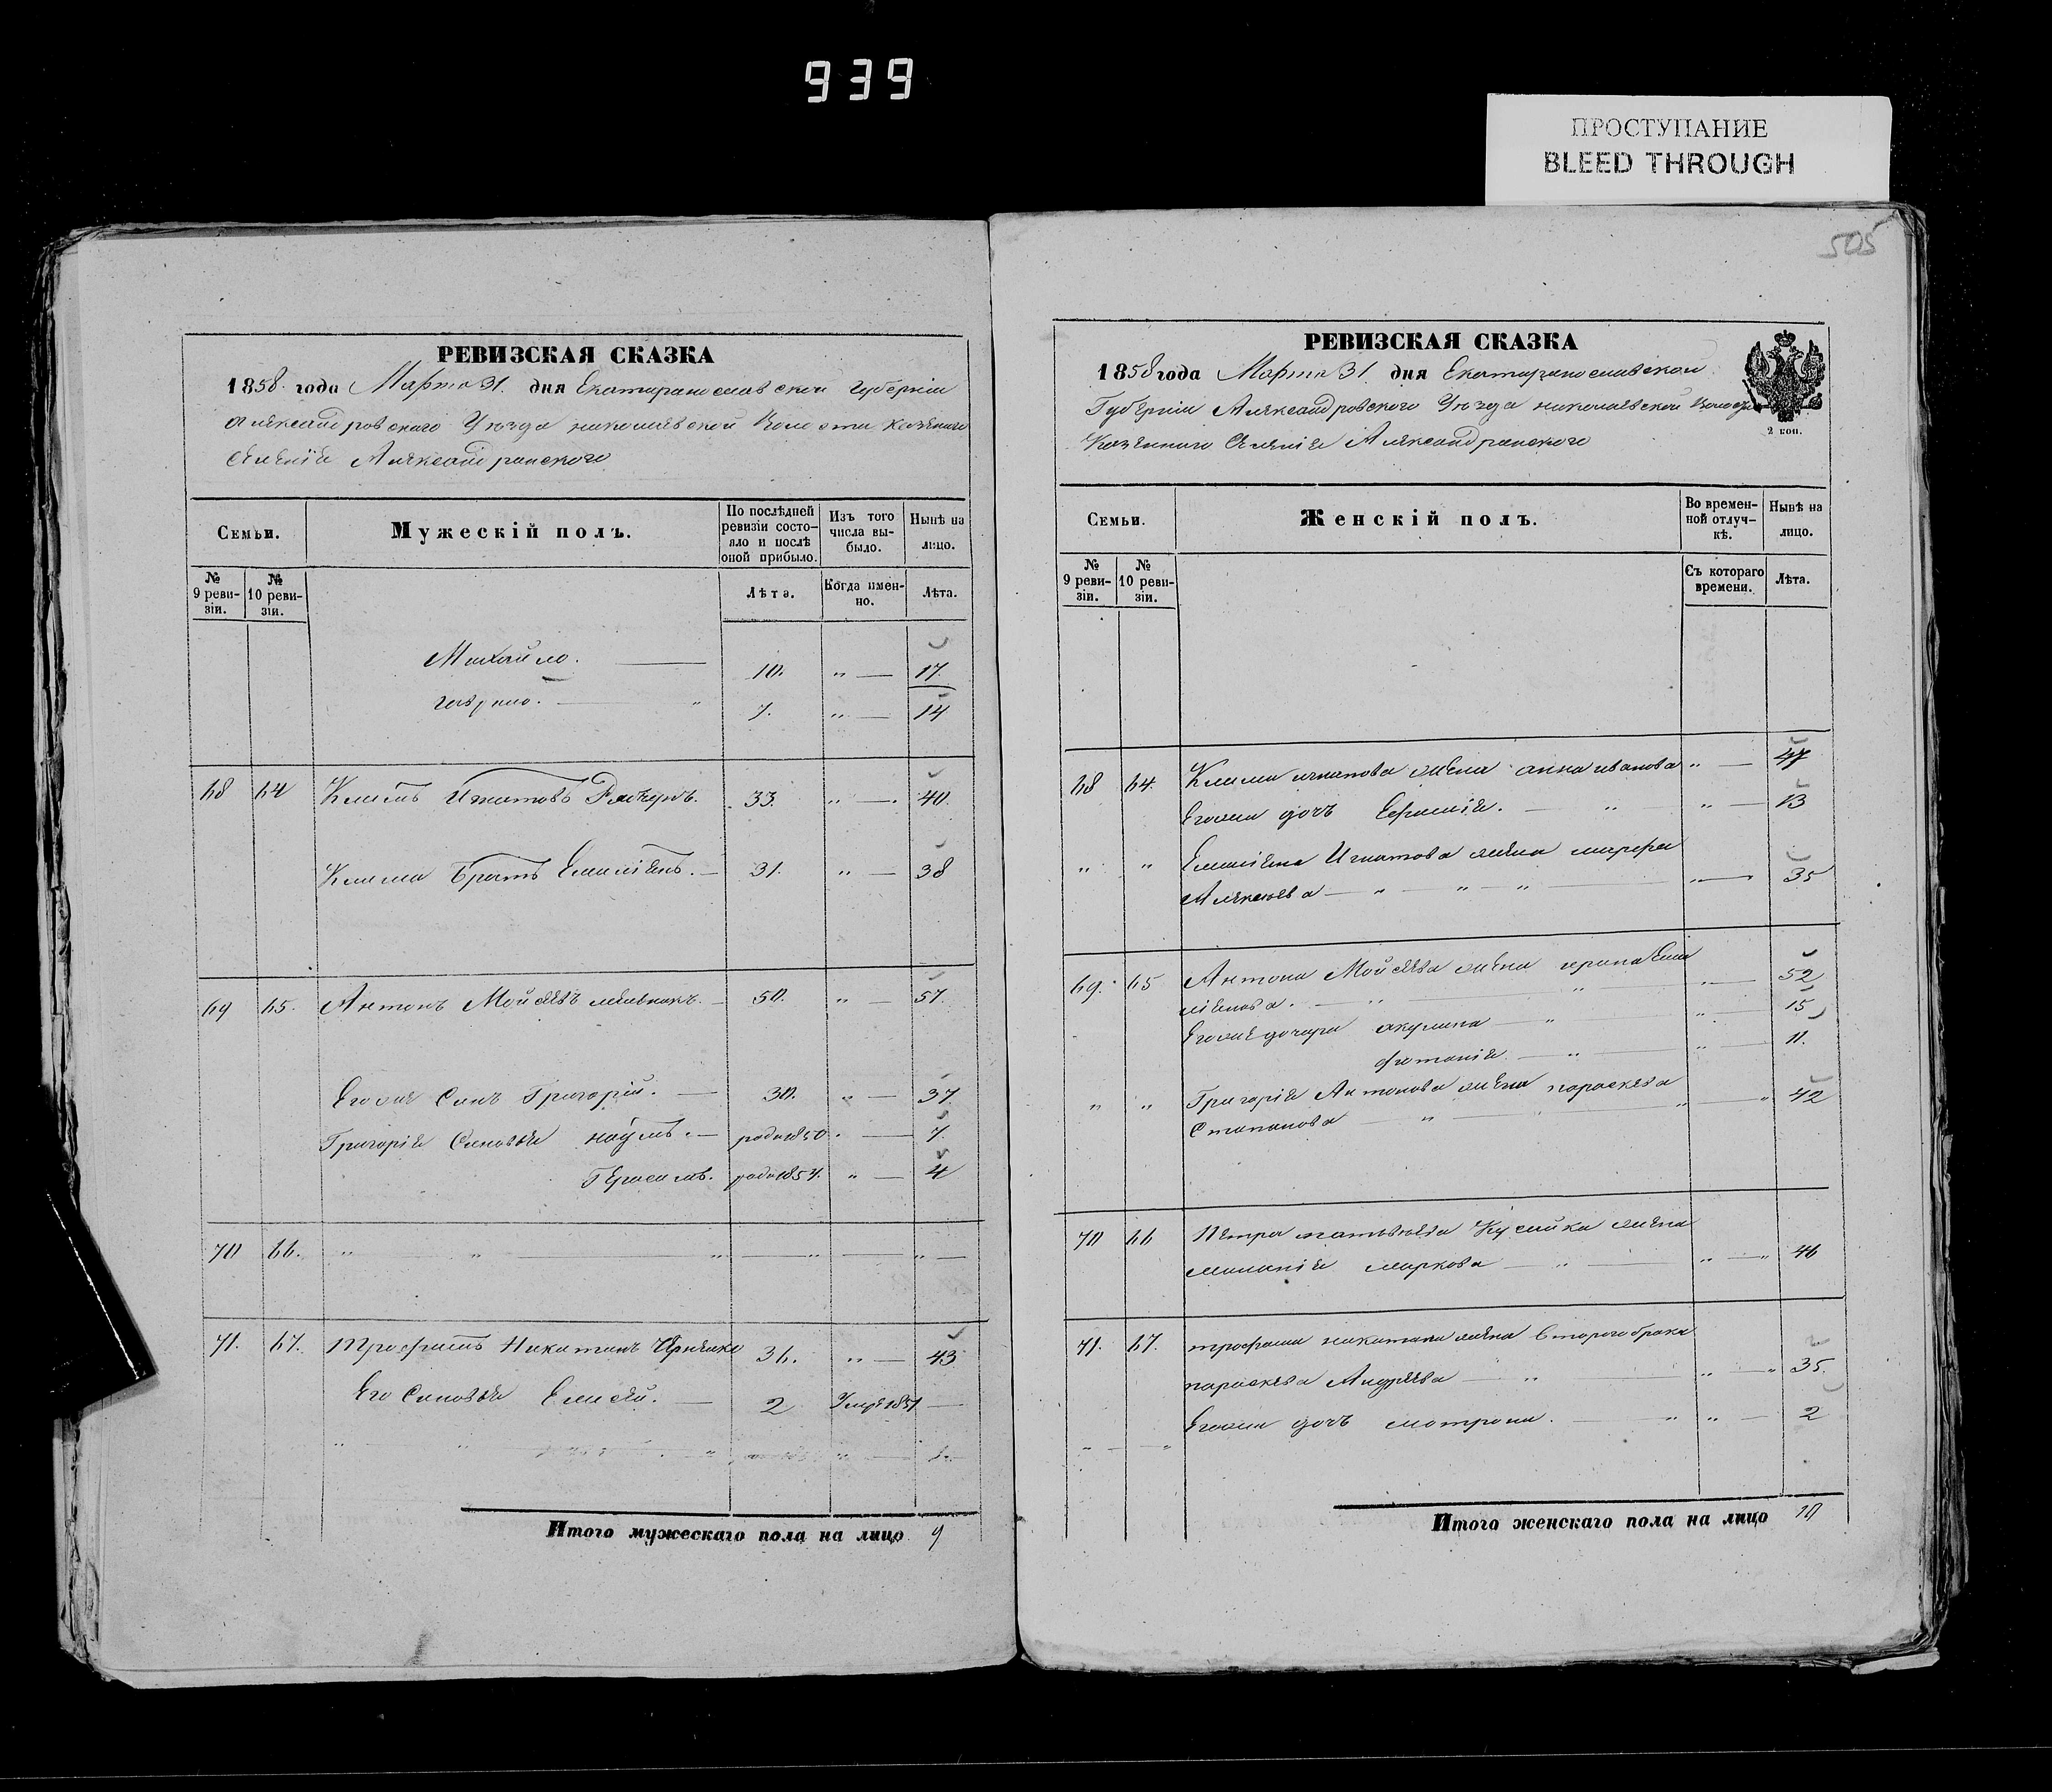 939
ПРОСТУПАНИЕ
BLEED THROUGH
505
РЕВИЗСКАЯ СКАЗКА
1858 года Марта 31 дня Екатеринославской Губерніи
Александровского Уезда николаевской Волости казенного
селеніе Александровского
Семьи.
Мужескій полъ.
По послѣдней ревизіи состояло и послѣ оной прибыло.
Изъ того числа выбыло.
Нынѣ на лицо.
№ 9 ревизіи.
№ 10 ревизіи.
Лѣта.
Когда именно.
Лѣта.
Михайло. 10. " 17.
гаврило. " 7. " 14
68 64 Климъ Игнатовъ 33. " 40.
Клима Братъ Емиліянъ. 31. " 38
69 65. Антонъ Мойсеевъ мельникъ. 50. " 57.
Егоже Синъ Григорій. 30. " 37
Григорія Синовья наумъ. родил 1850. " 7.
Герасимъ. родил 1854. " 4
70 66. " " " " "
71. 67. Трофимъ Никитинъ 36. " 43
Его Синовья Елисей. 2 Умре 1851
Итого мужескаго пола на лицо 9
РЕВИЗСКАЯ СКАЗКА
1858 года Марта 31 дня Екатеринославской
Губерніи Александровского Уезда николаевской Волости
Казенного Селеніе Александровского
2 коп.
Семьи.
Женскій полъ.
Во временной отлучкѣ.
Нынѣ на лицо.
№ 9 ревизіи.
№ 10 ревизіи.
Съ котораго времени.
Лѣта.
68 64. Клима игнатова жена анна иванова " 47
Егожа дочъ Ефимія. " " 13
" " Емиліяна Игнатова жена марфа
Алексеева " " " " 35
69. 65 Антона Мойсеева жена ирина Еми
ліянова. " " " 52
Егоже дочери акулина " " 15
" " 11.
" " Григорія Антонова жена параскева
Степанова " " " 42
70 66 Петра матвеева жена
маланія маркова " " 46
71. 67. трофима никитина жена Второго брака
параскева Андреева " " 35.
Егожа дочъ мотрона. " " 2
Итого женскаго пола на лицо 10